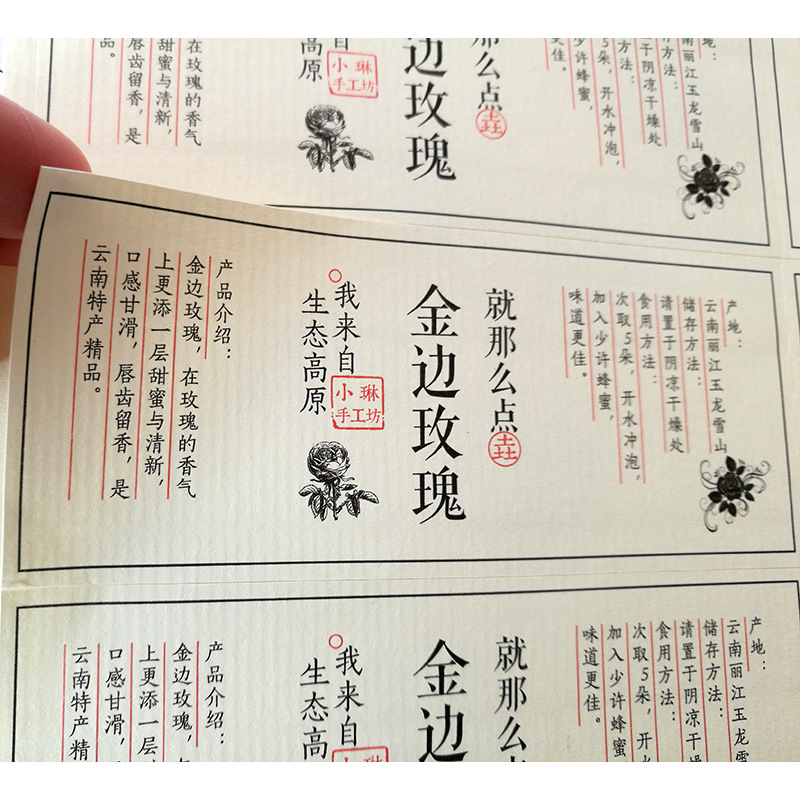 地：
南丽江玉龙雪山
于阴凉干燥处
方法：
5朵，开水冲泡，
少许蜂蜜，
更佳。
那么点
垚
边玫瑰
自
高原
小琳
手工坊
在玫瑰的香气
甜蜜与清新，
唇齿留香，是
品。
产地：
云南丽江玉龙雪山
储存方法：
请置于阴凉干燥处
食用方法：
次取5朵，开水冲泡，
加入少许蜂蜜，
味道更佳。
就那么点
垚
金边玫瑰
我来自
生态高原
小琳
手工坊
产品介绍：
金边玫瑰，在玫瑰的香气
上更添一层甜蜜与清新，
口感甘滑，唇齿留香，是
云南特产精品。
产地：
云南丽江玉龙雪
储存方法：
请置于阴凉干
食用方法：
次取5朵，开水
加入少许蜂蜜
味道更佳。
就那么
金边
我来自
生态高
小琳
产品介绍：
金边玫瑰，
上更添一层
口感甘滑，
云南特产精